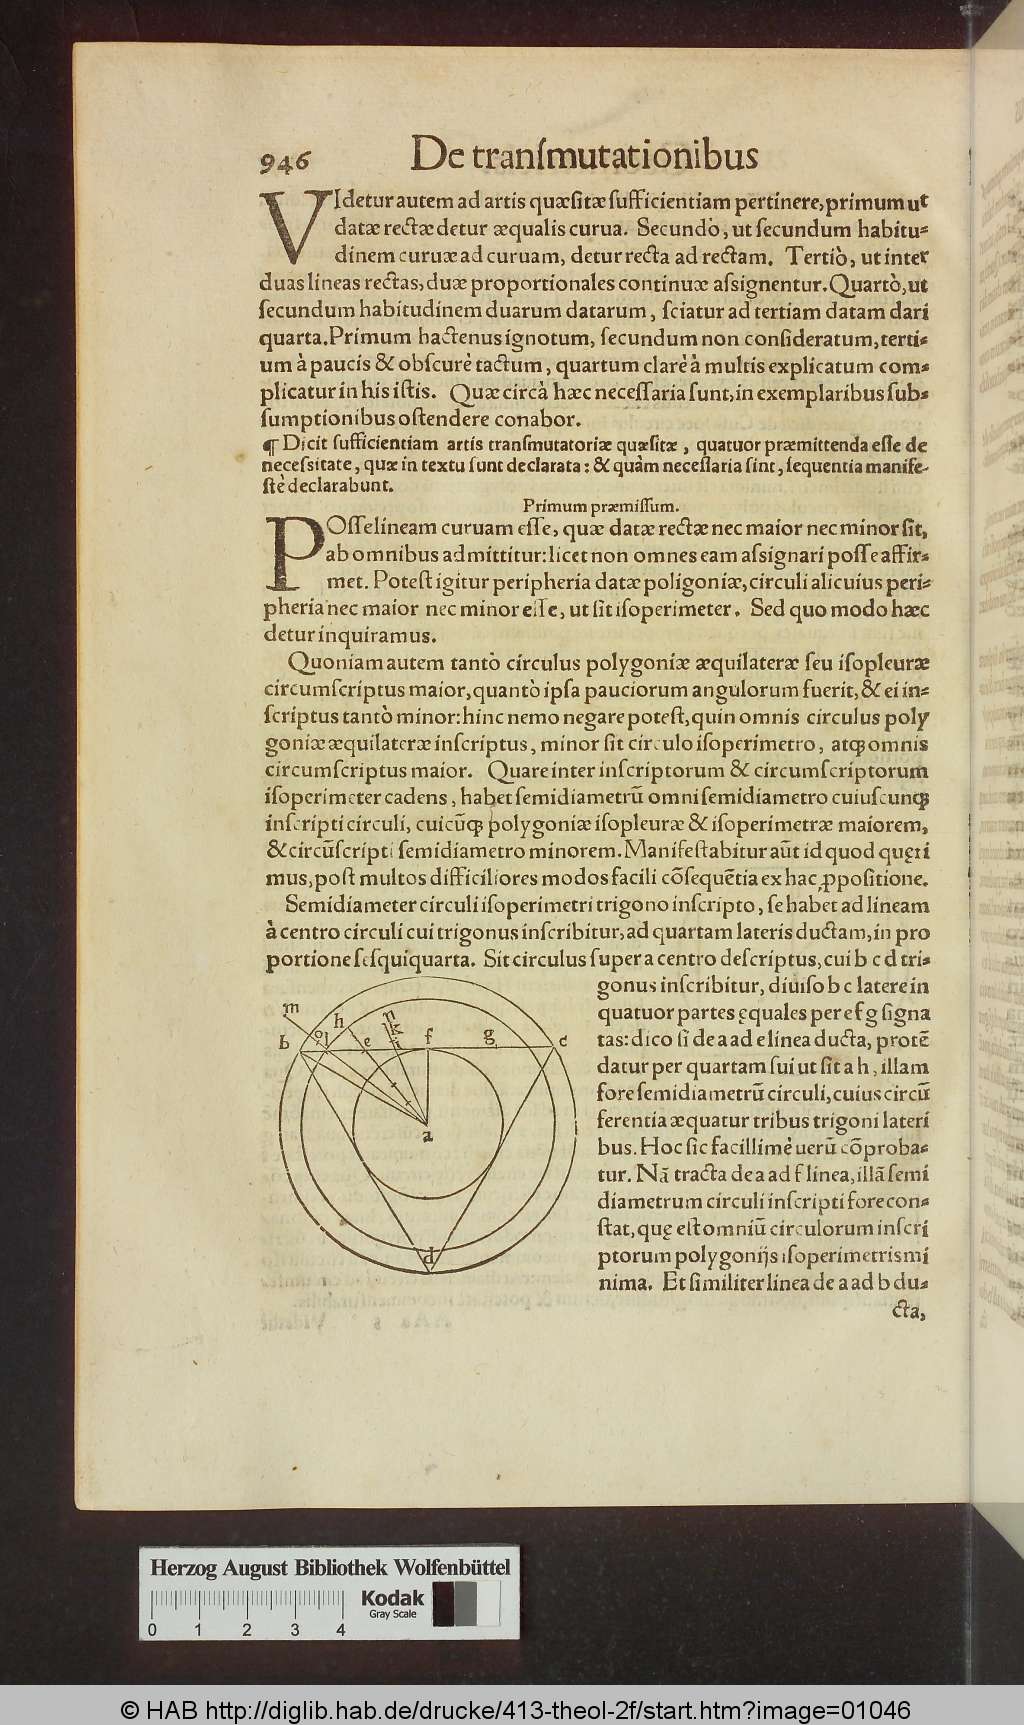 946 De tranſmutationibus
VIdetur autem ad artis quæſitæ ſufficientiam pertinere, primum ut
datæ rectæ detur æqualis curua. Secundò, ut ſecundum habitu-
dinem curuæ ad curuam, detur recta ad rectam. Tertiò, ut inter
duas lineas rectas, duæ proportionales continuæ aſsignentur. Quartò, ut
ſecundum habitudinem duarum datarum, ſciatur ad tertiam datam dari
quarta. Primum hactenus ignotum, ſecundum non conſideratum, terti-
um à paucis & obſcurè tactum, quartum clarè à multis explicatum com-
plicatur in his iſtis. Quæ circà hæc neceſſaria ſunt, in exemplaribus ſub-
ſumptionibus oſtendere conabor.
¶ Dicit ſufficientiam artis tranſmutatoriæ quæſitæ, quatuor præmittenda eſſe de
neceſsitate, quæ in textu ſunt declarata: & quàm neceſſaria ſint, ſequentia manife-
ſtè declarabunt.
Primum præmiſſum.
POſſe lineam curuam eſſe, quæ datæ rectæ nec maior nec minor ſit,
ab omnibus admittitur: licet non omnes eam aſsignari poſſe affir-
met. Poteſt igitur peripheria datæ poligoniæ, circuli alicuius peri-
pheria nec maior nec minor eſſe, ut ſit iſoperimeter. Sed quo modo hæc
detur inquiramus.
Quoniam autem tantò circulus polygoniæ æquilateræ ſeu iſopleuræ
circumſcriptus maior, quantò ipſa pauciorum angulorum fuerit, & ei in-
ſcriptus tantò minor: hinc nemo negare poteſt, quin omnis circulus poly
goniæ æquilateræ inſcriptus, minor ſit circulo iſoperimetro, atqꝫ omnis
circumſcriptus maior. Quare inter inſcriptorum & circumſcriptorum
iſoperimeter cadens, habet ſemidiametrũ omni ſemidiametro cuiuſcunqꝫ
inſcripti circuli, cuicũqꝫ polygoniæ iſopleuræ & iſoperimetræ maiorem,
& circũſcripti ſemidiametro minorem. Manifeſtabitur aũt id quod quęri
mus, poſt multos difficiliores modos facili cõſequẽtia ex hac ꝓpoſitione.
Semidiameter circuli iſoperimetri trigono inſcripto, ſe habet ad lineam
à centro circuli cui trigonus inſcribitur, ad quartam lateris ductam, in pro
portione ſeſquiquarta. Sit circulus ſuper a centro deſcriptus, cui b c d tri-
gonus inſcribitur, diuiſo b c latere in
quatuor partes ęquales per e f g ſigna
tas: dico ſi de a ad e linea ducta, protẽ
datur per quartam ſui ut ſit a h, illam
fore ſemidiametrũ circuli, cuius circũ
ferentia æquatur tribus trigoni lateri
bus. Hoc ſic facillimè uerũ cõproba-
tur. Nã tracta de a ad f linea, illã ſemi
diametrum circuli inſcripti fore con-
ſtat, quę eſt omniũ circulorum inſcri
ptorum polygonijs iſoperimetris mi
nima. Et ſimiliter linea de a ad b du-
cta,
m
h
b o l e f g c
a
d
Herzog August Bibliothek Wolfenbüttel
Kodak
Gray Scale
0 1 2 3 4
© HAB http://diglib.hab.de/drucke/413-theol-2f/start.htm?image=01046